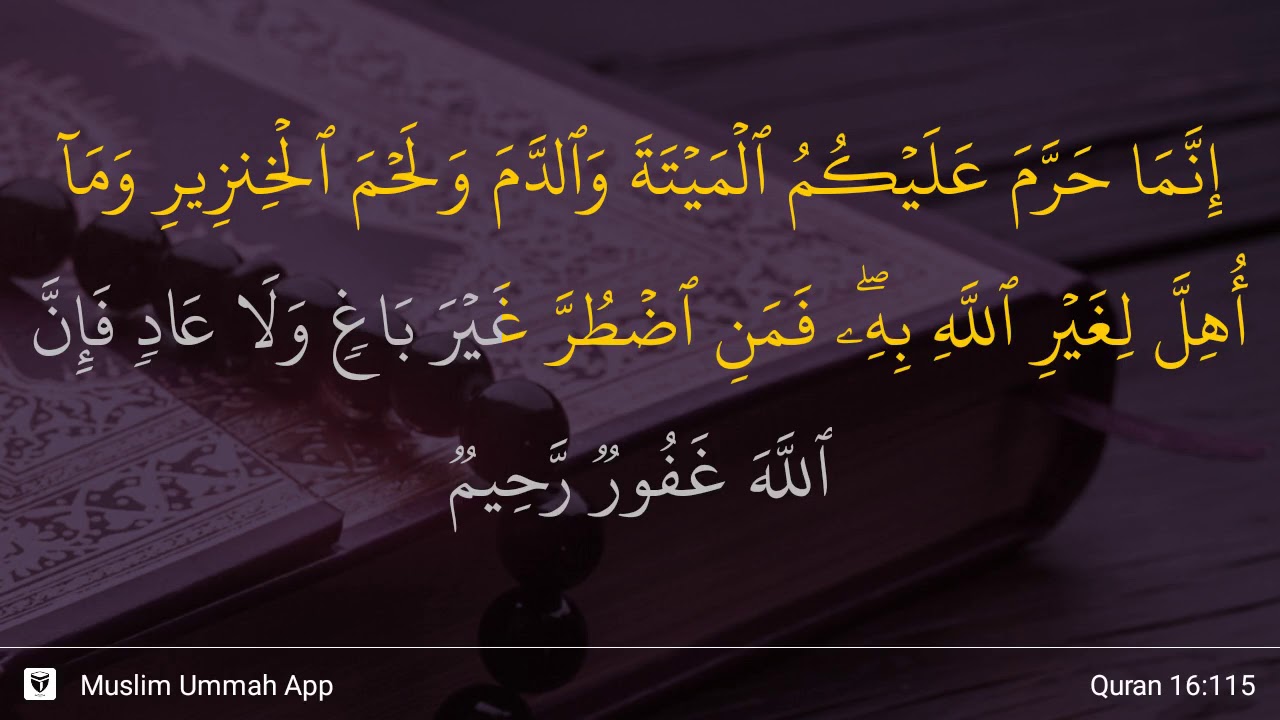 إِنَّمَا حَرَّمَ عَلَيۡكُمُ ٱلۡمَيۡتَةَ وَٱلدَّمَ وَلَحۡمَ ٱلۡخِنزِيرِ وَمَآ
أُهِلَّ لِغَيۡرِ ٱللَّهِ بِهِۦۖ فَمَنِ ٱضۡطُرَّ غَيۡرَ بَاغٖ وَلَا عَادٖ فَإِنَّ
ٱللَّهَ غَفُورٞ رَّحِيمٞ
Muslim Ummah App
Quran 16:115